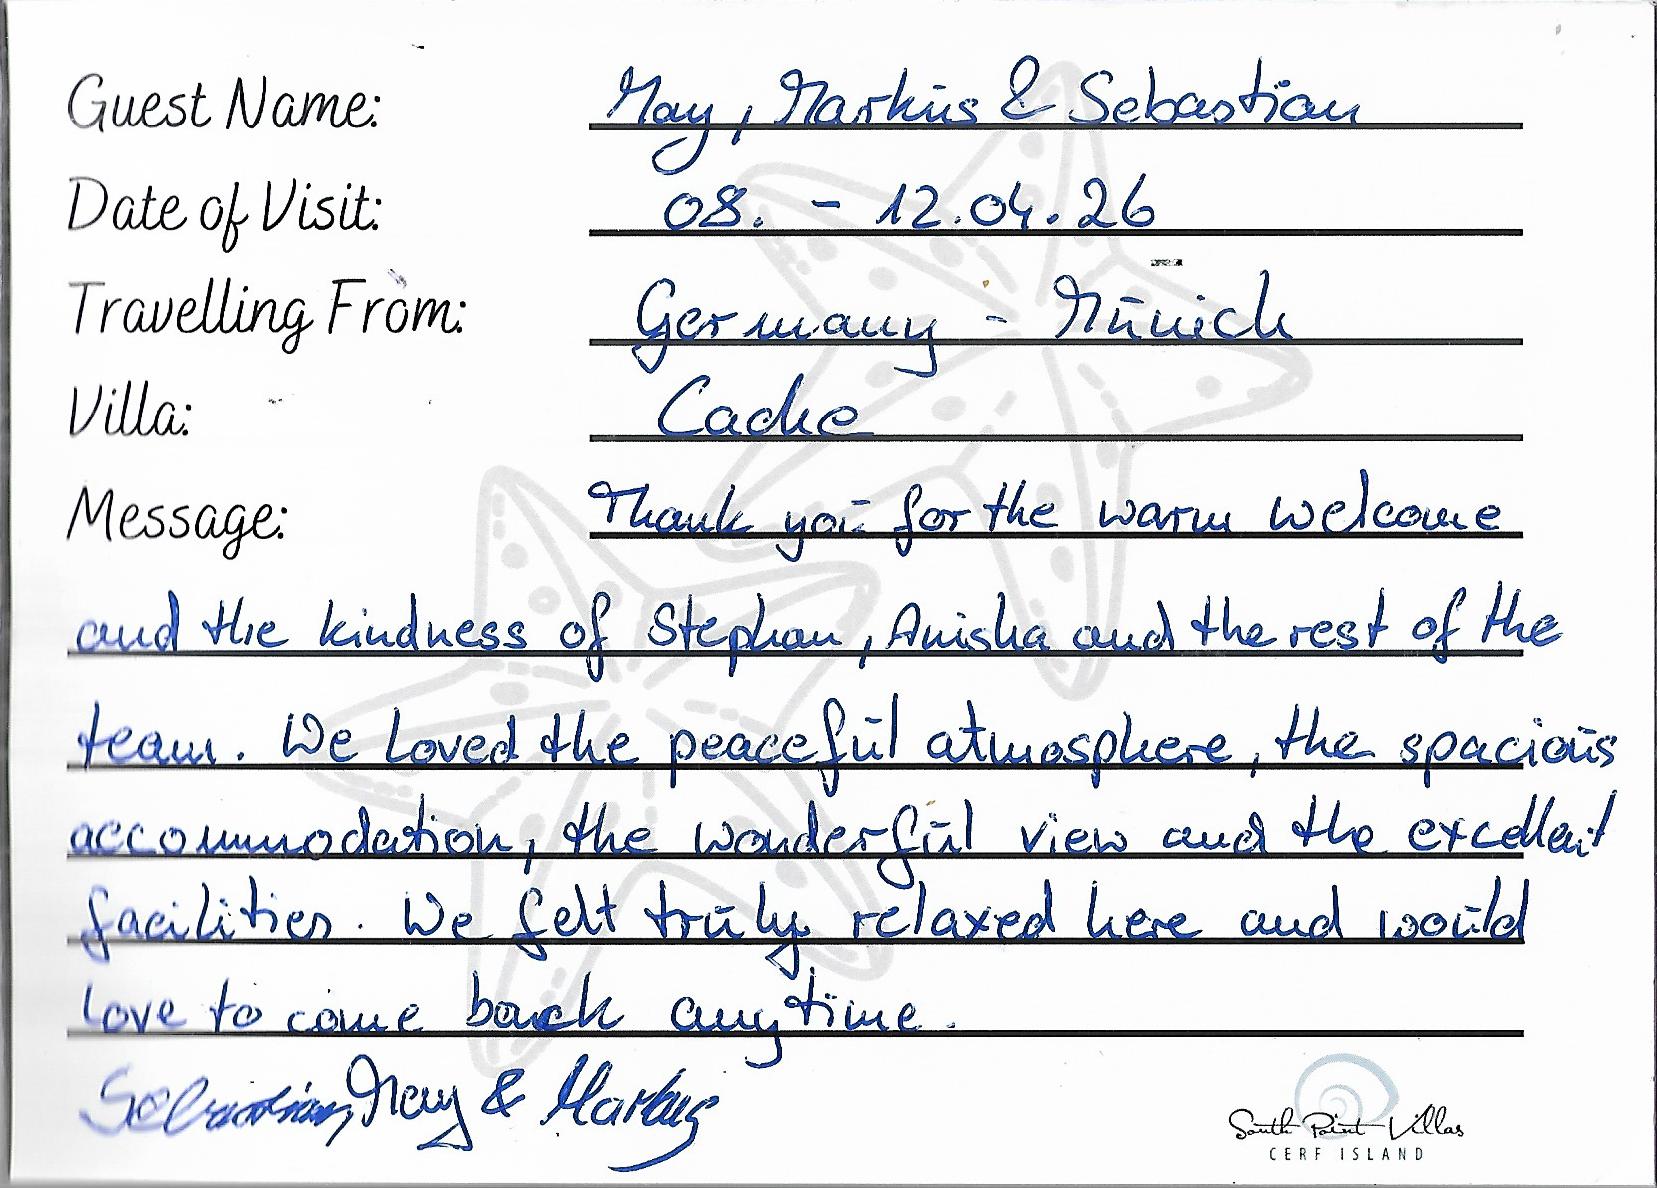 Guest Name: May, Markus & Sebastian
Date of Visit: 08. - 12.04.26
Travelling From: Germany - Munich
Villa: Cache
Message: Thank you for the warm welcome
and the kindness of Stephan, Anisha and the rest of the
team. We loved the peaceful atmosphere, the spacious
accommodation, the wonderful view and the excellent
facilities. We felt truly relaxed here and would
love to come back anytime.
Sebastian, May & Markus
South Point Villas
CERF ISLAND